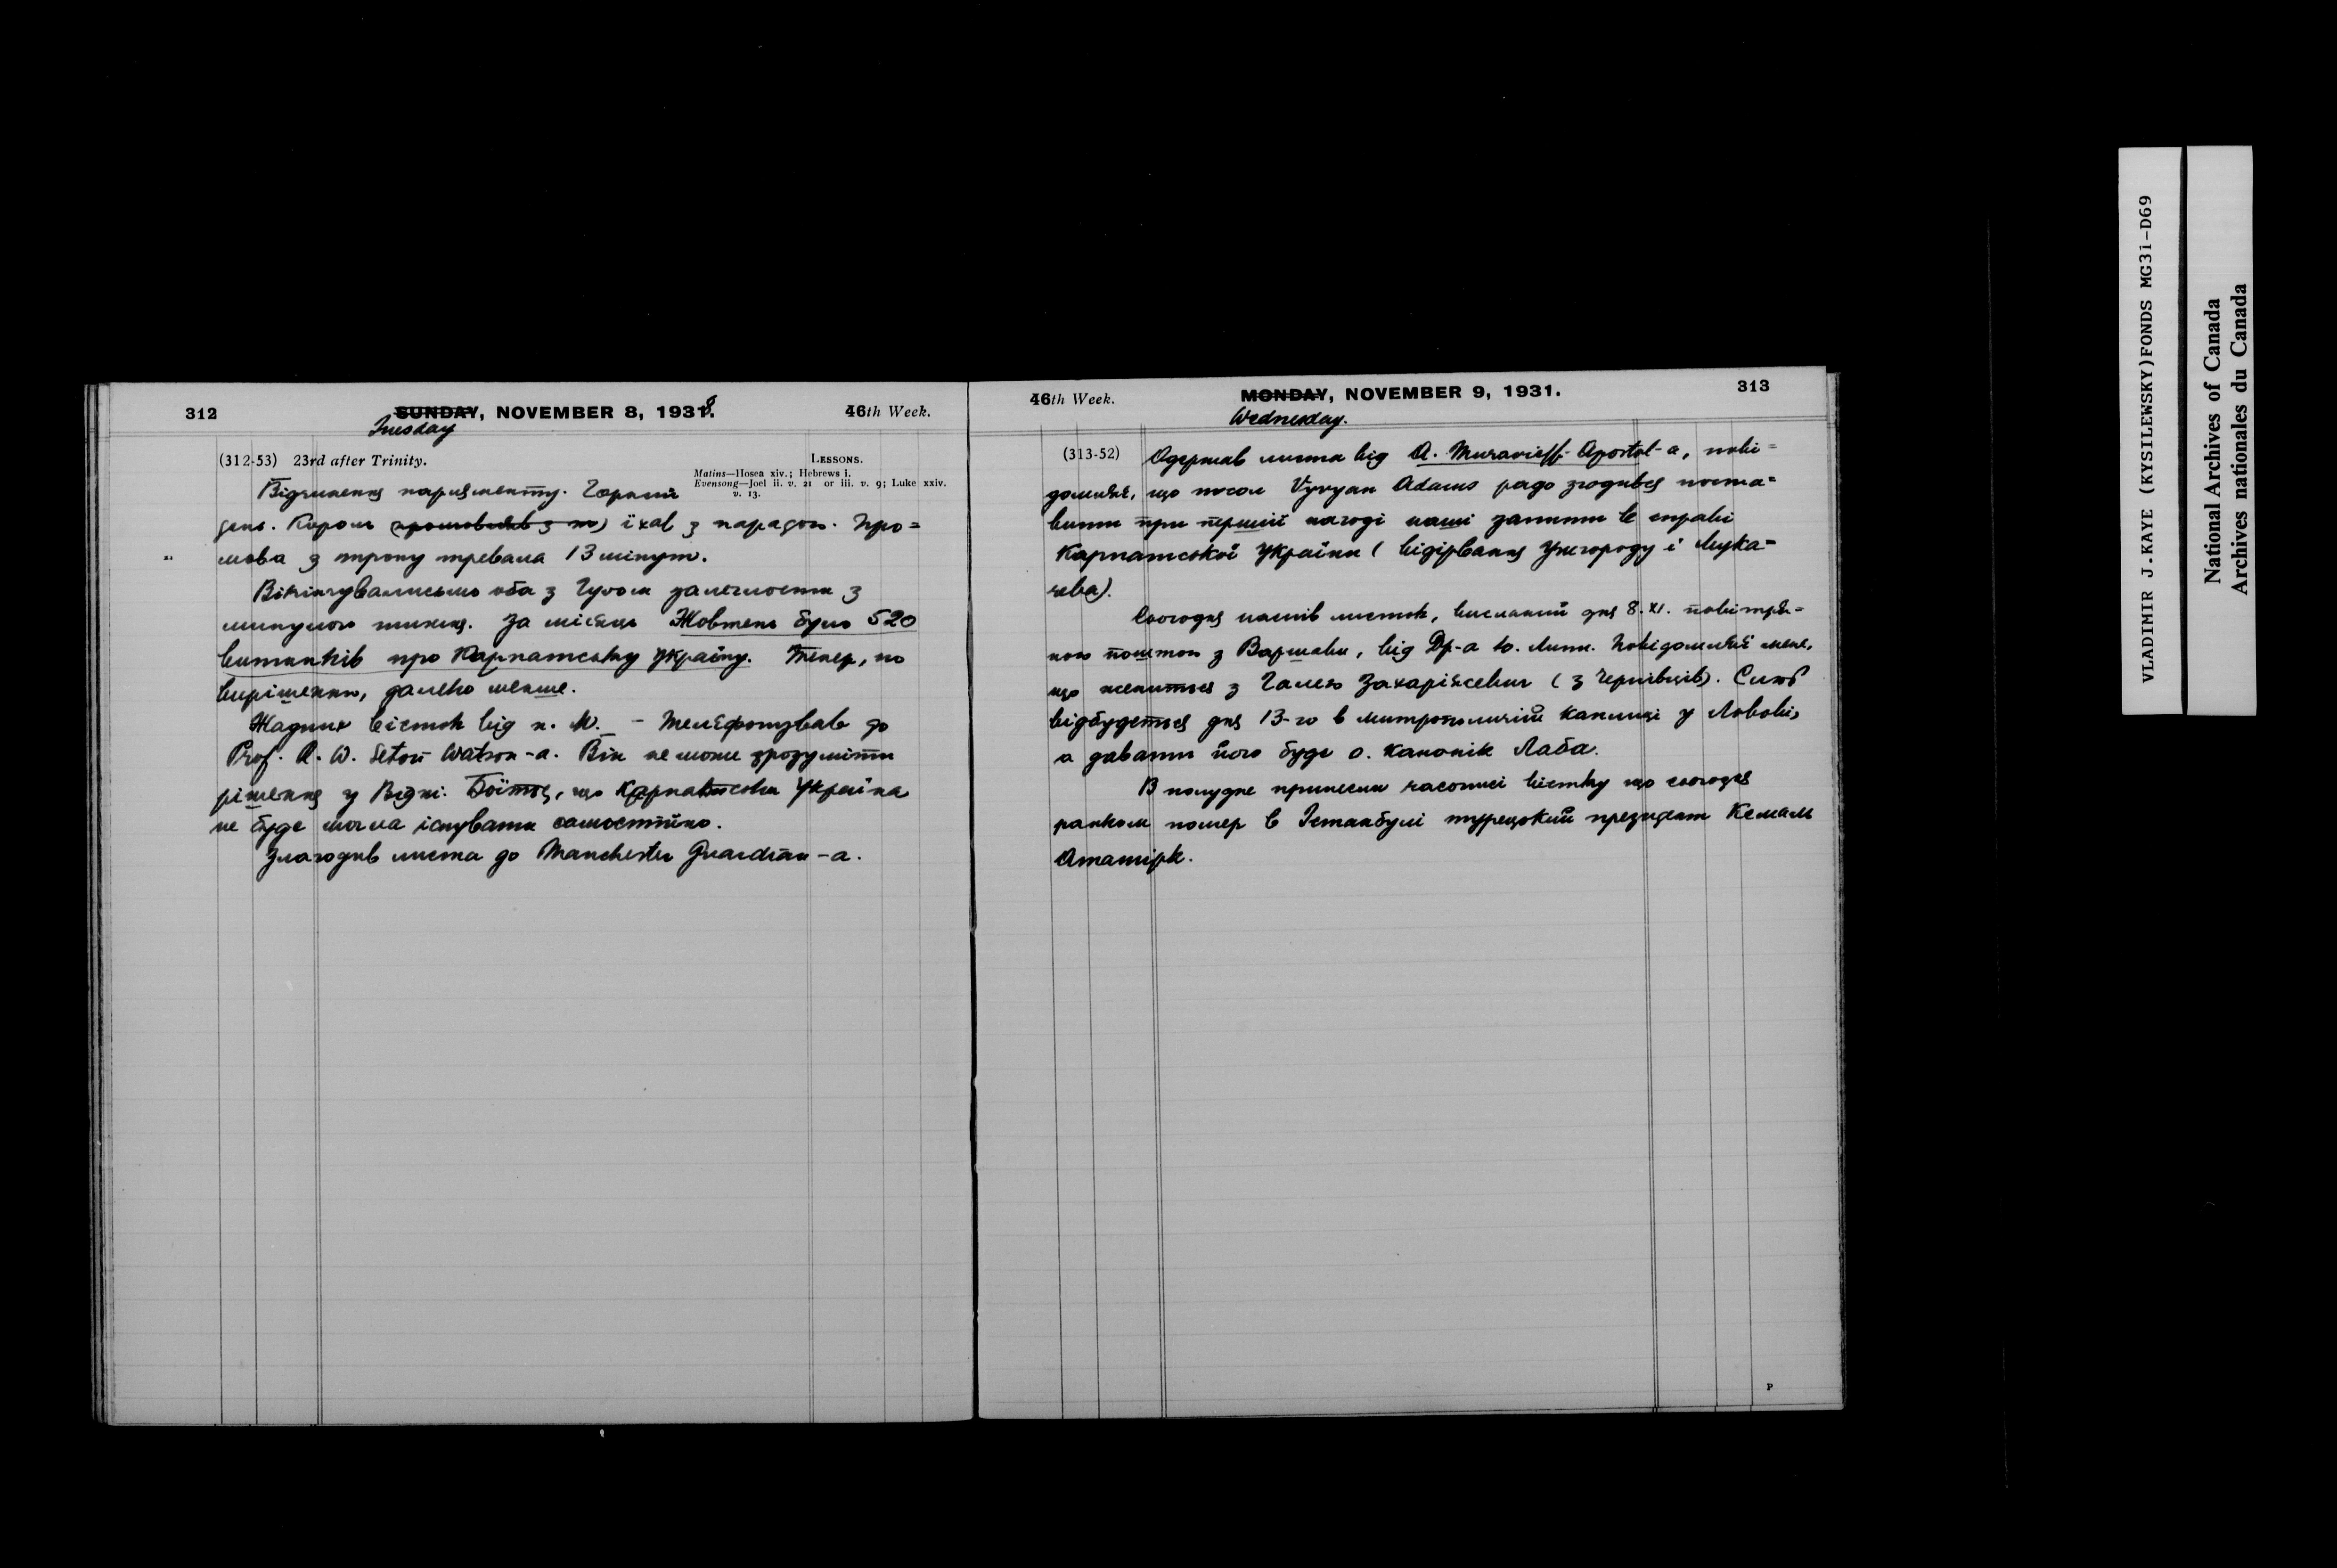 312
SUNDAY, NOVEMBER 8, 1938.
46th Week.
Tuesday
(312-53) 23rd after Trinity.
LESSONS.
Matins—Hosea xiv.; Hebrews i.
Evensong—Joel ii. v. 21 or iii. v. 9; Luke xxiv.
v. 13.
Відчинення парляменту. Гарний
день. Король (промовляв з т) їхав з парадою. Про=
мова з трону тревала 13 мінут.
оба з залеглости з
минулого тижня. За місяць Жовтень було 520
витинків про Карпатську Україну. Тепер, по
вирішенню, далеко менше.
Жадних вісток від п. М. – Телєфонував до
Prof. R. W. Seton Watson-а. Він не може зрозуміти
рішення у Відні. Боїться, що Карпатська Україна
не буде могла існувати самостійно.
Злагодив листа до Manchester Guardian-а.
46th Week.
MONDAY, NOVEMBER 9, 1931.
313
Wednesday.
(313-52) Одержав листа від A. Muravieff-Apostol-а, пові=
домляє, що посол Vyvyan Adams радо згодився поста=
вити при першій нагоді наші запити в справі
Карпатської України (відірвання Ужгороду і Мука=
чева).
Сьогодня наспів листок, висланий дня 8.XI. повітря=
ною поштою з Варшави, від Др-а Ю. Лип. Повідомляє мене,
що жениться з Галею Захаріясевич (з Чернівців). Слюб
відбудеться дня 13-го в митрополичій каплиці у Львові,
а давати його буде о. канонік Лаба.
В полудне принесли часописі вістку що сьогодня
ранком помер в Істанбулі турецький президент Кемаль
Ататірк.
P
VLADIMIR J.KAYE (KYSILEWSKY)FONDS MG31-D69
National Archives of Canada
Archives nationales du Canada